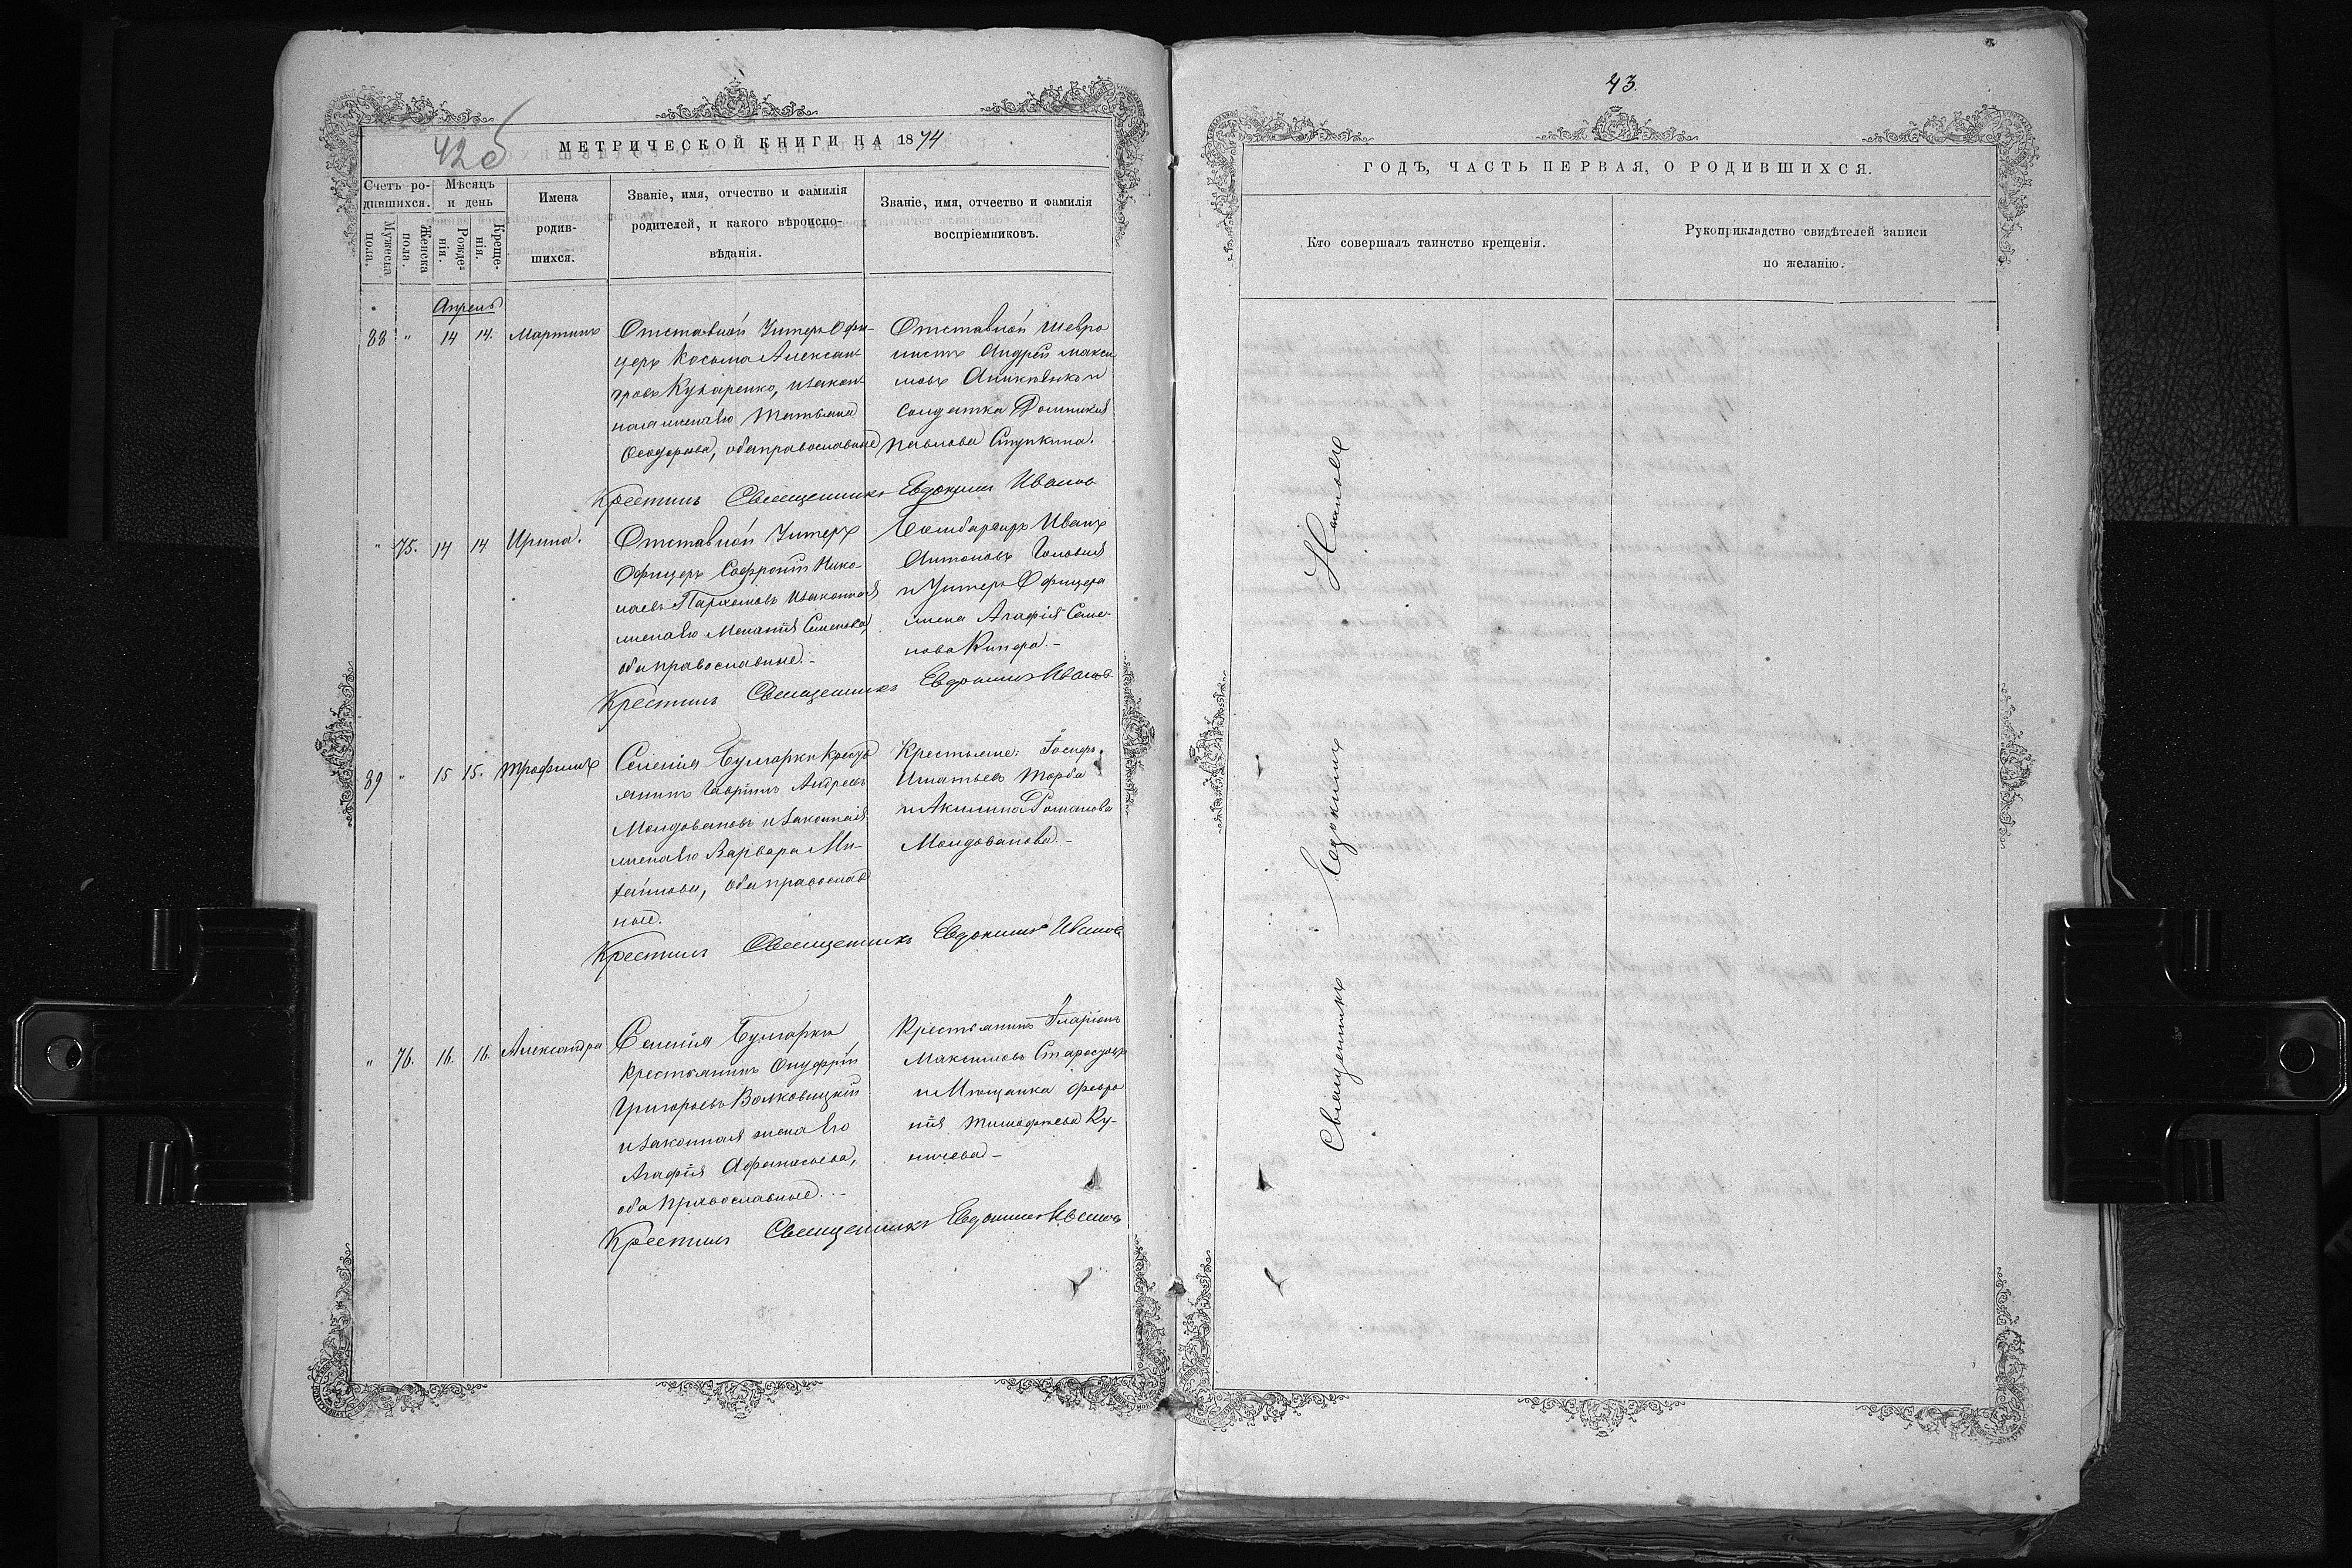 42об
МЕТРИЧЕСКОЙ КНИГИ НА 1874
Счетъ ро-
дившихся.
Мѣсяцъ
и день
Мужеска
пола.
Женска
пола.
Рожде-
нія.
Креще-
нія.
Имена
родив-
шихся.
Званіе, имя, отчество и фамилія
родителей, и какого вѣроиспо-
вѣданія.
Званіе, имя, отчество и фамилія
воспріемниковъ.
Апрель
88 " 14 14. Мартинъ
Отставной Унтеръ Офи-
церъ Косьма Алексан-
дровъ Кухаренко, и закон-
ная жена его Татьяна
Феодорова, оба православные
Отставной шевро
нистъ Андрей Макси
мовъ и
солдатка Домникия
Павлова Ступкина.
Крестилъ Священникъ Евдокимъ Ивановъ
" 75. 14 14 Ирина.
Отставной Унтеръ
Офицеръ Софроній Нико-
лаевъ Пархомовъ и законная
жена его Меланія Семенова,
оба православные.-
Бомбардиръ Иванъ
Антоновъ Головня
и Унтеръ Офицера
жена Агафія Семе-
нова Кипера.-
Крестилъ Священникъ Евдокимъ Ивановъ
89 " 15 15. Трофимъ
Селенія Булгарки Кресть
янинъ Гавріилъ Андреевъ
Молдовановъ и законная
жена его Варвара Ми-
хайлова, оба православ
ные.
Крестьяне: Іосифъ
Игнатьевъ Торба
и Акилина Романова
Молдованова.-
Крестилъ Священникъ Евдокимъ Ивановъ
" 76. 16. 16. Александра
Селенія Булгарки
Крестьянинъ Онуфрій
Григорьевъ Волковицкій
и законная жена его
Агафія Афанасьева,
оба Православные.-
Крестьянинъ Іларіонъ
Максимовъ
и Мѣщанка Февро
нія Тимофеева Ку-
ничева-
Крестилъ Священникъ Евдокимъ Ивановъ
43.
ГОДЪ, ЧАСТЬ ПЕРВАЯ, О РОДИВШИХСЯ.
Кто совершалъ таинство крещенія.
Рукоприкладство свидѣтелей записи
по желанію.
Священникъ Евдокимъ Ивановъ